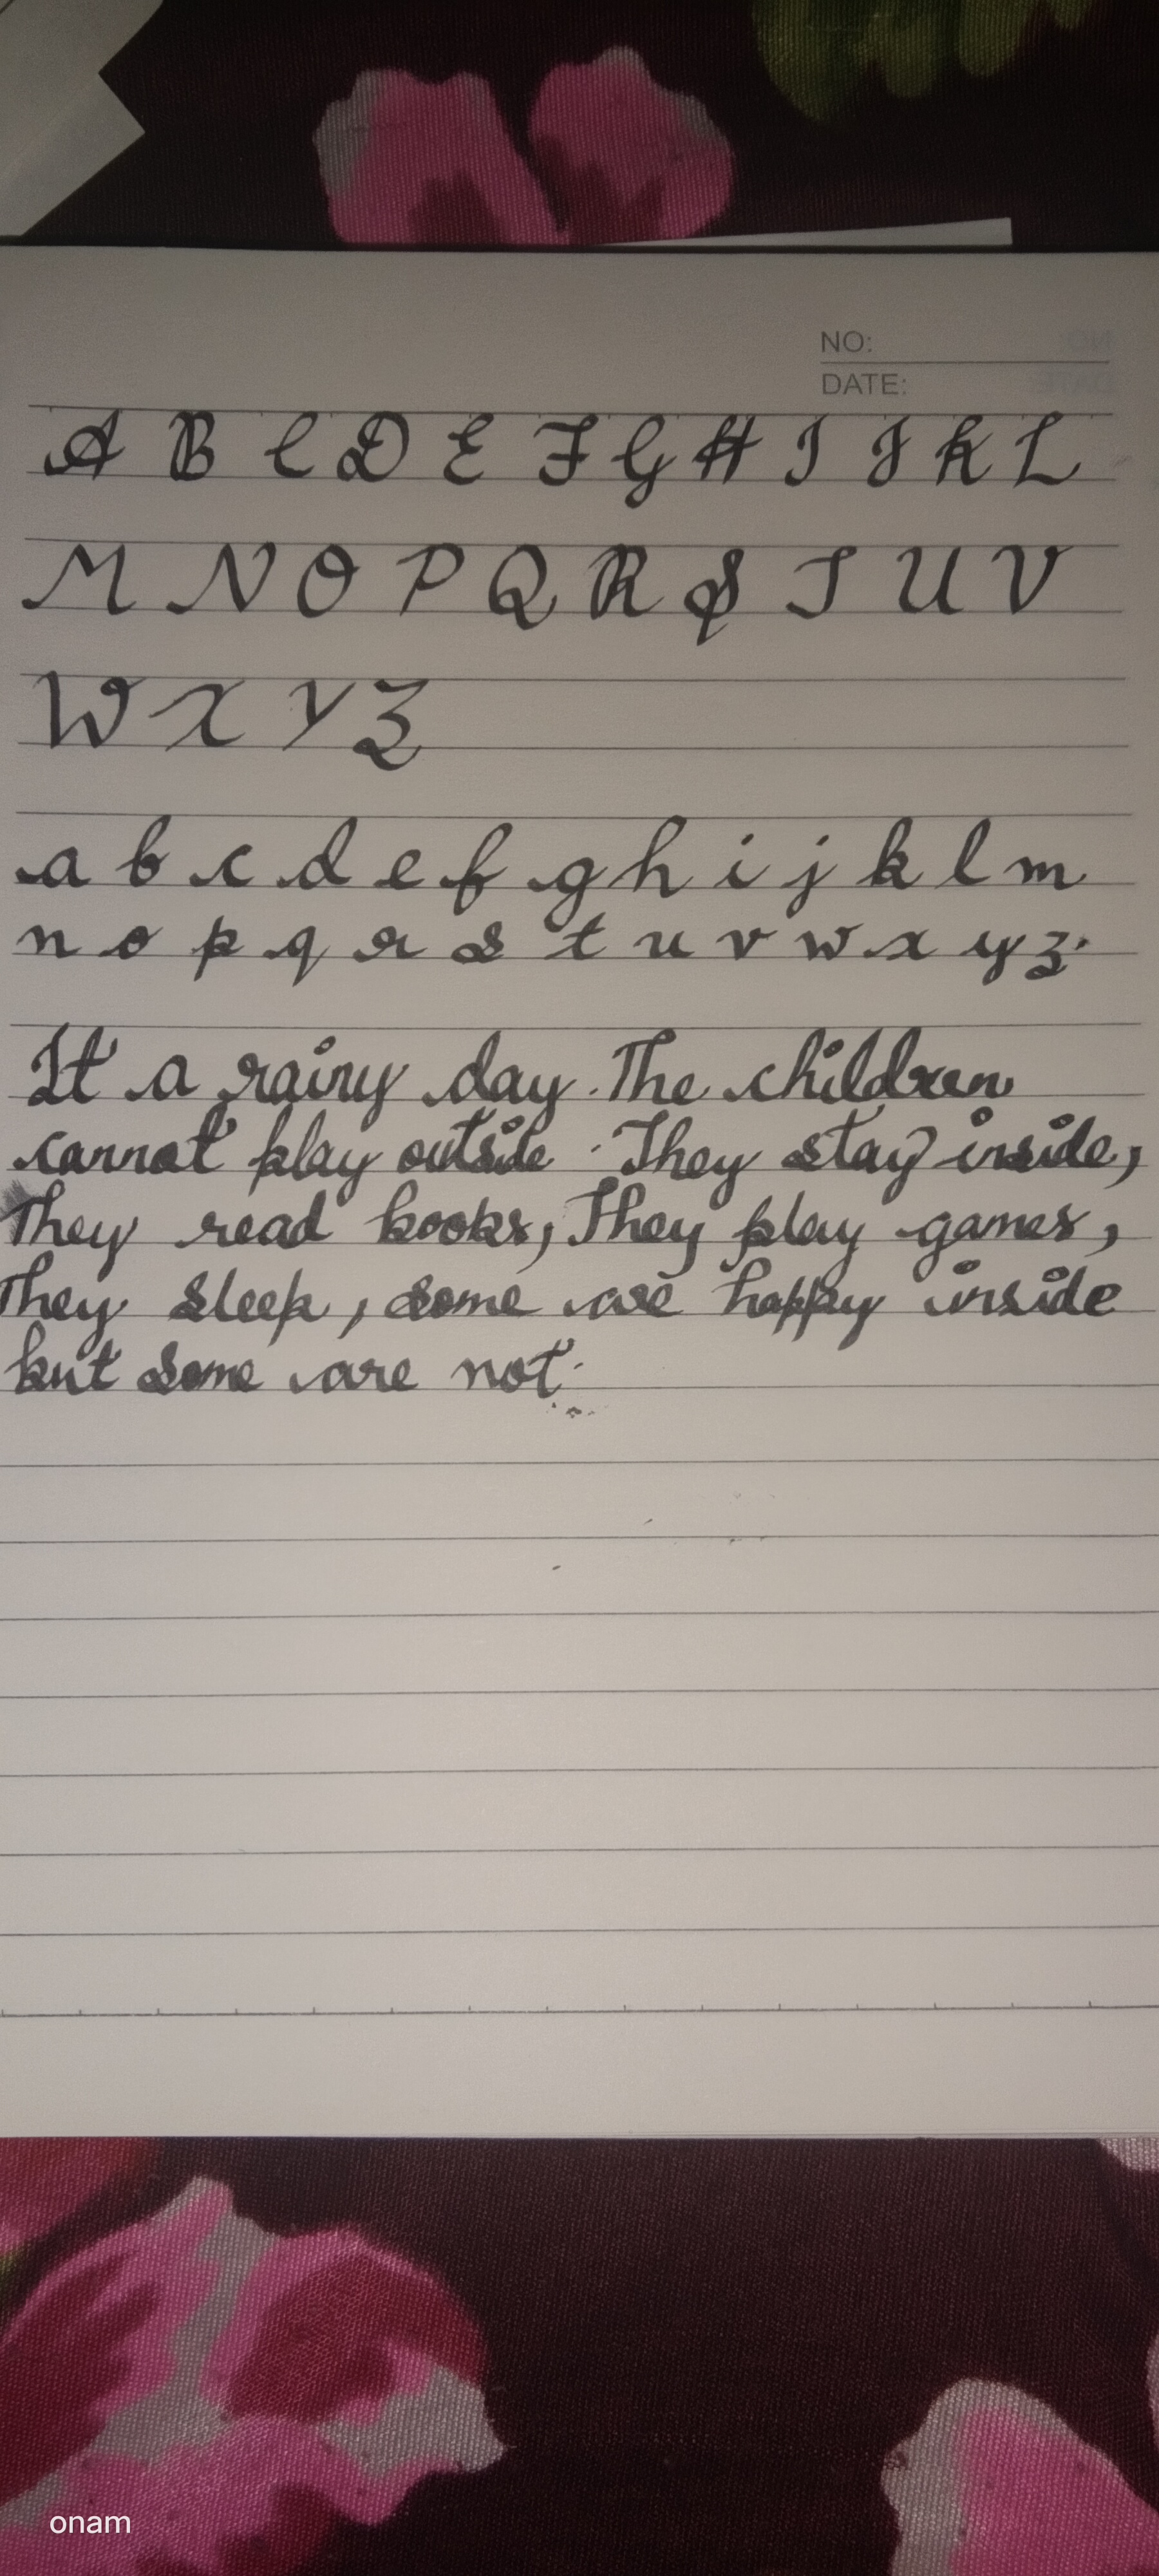 NO:
DATE:
A B C D E F G H I J K L
M N O P Q R S T U V
W X Y Z
a b c d e f g h i j k l m
n o p q r s t u v w x y z.
It a rainy day. The children
cannot play outside. They stay inside,
They read books, They play games,
They sleep, some are happy inside
but some are not.
onam